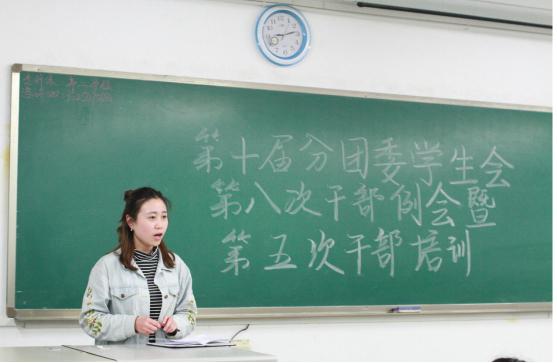 第十届分团委学生会
第八次干部例会暨
第五次干部培训